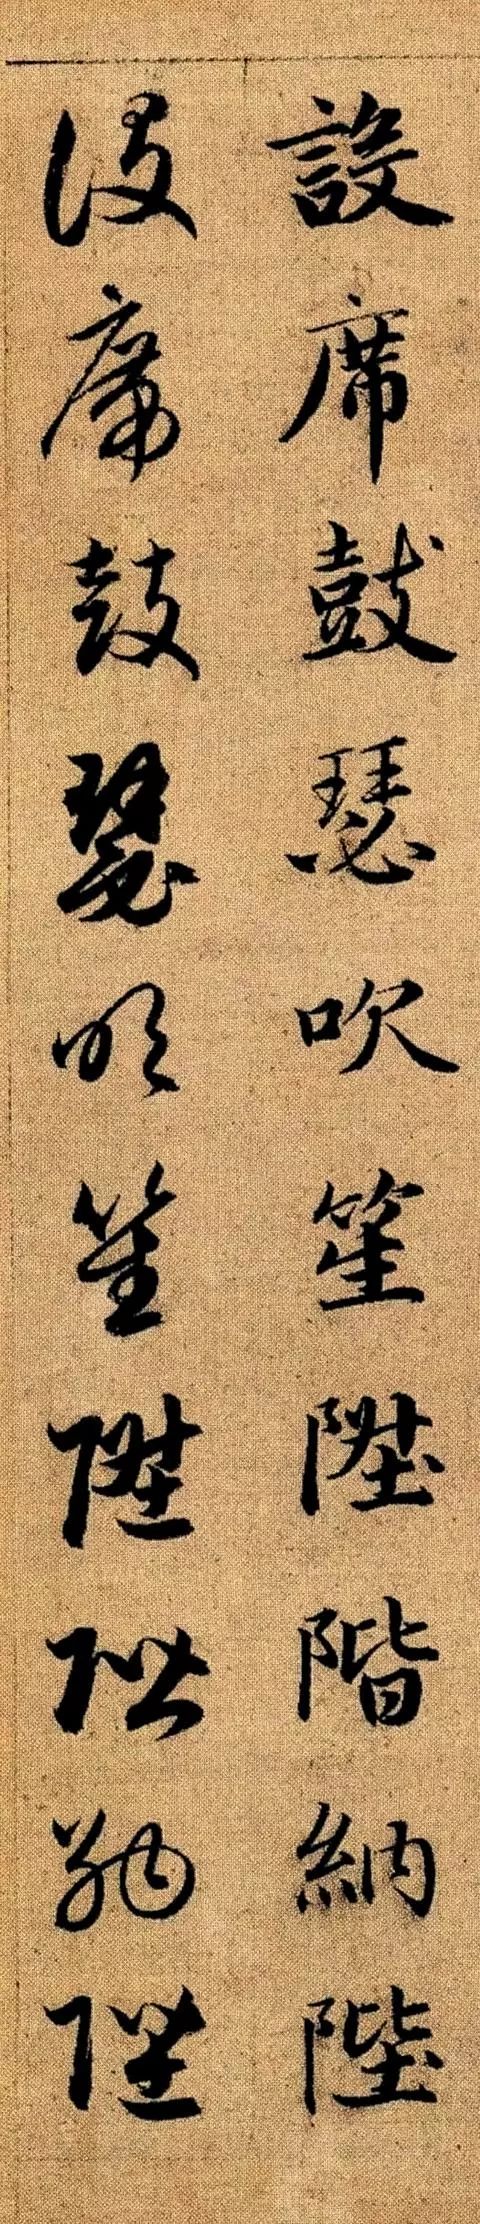 設席鼓瑟吹笙陞階納陛
設席鼓瑟吹笙陞階納陛